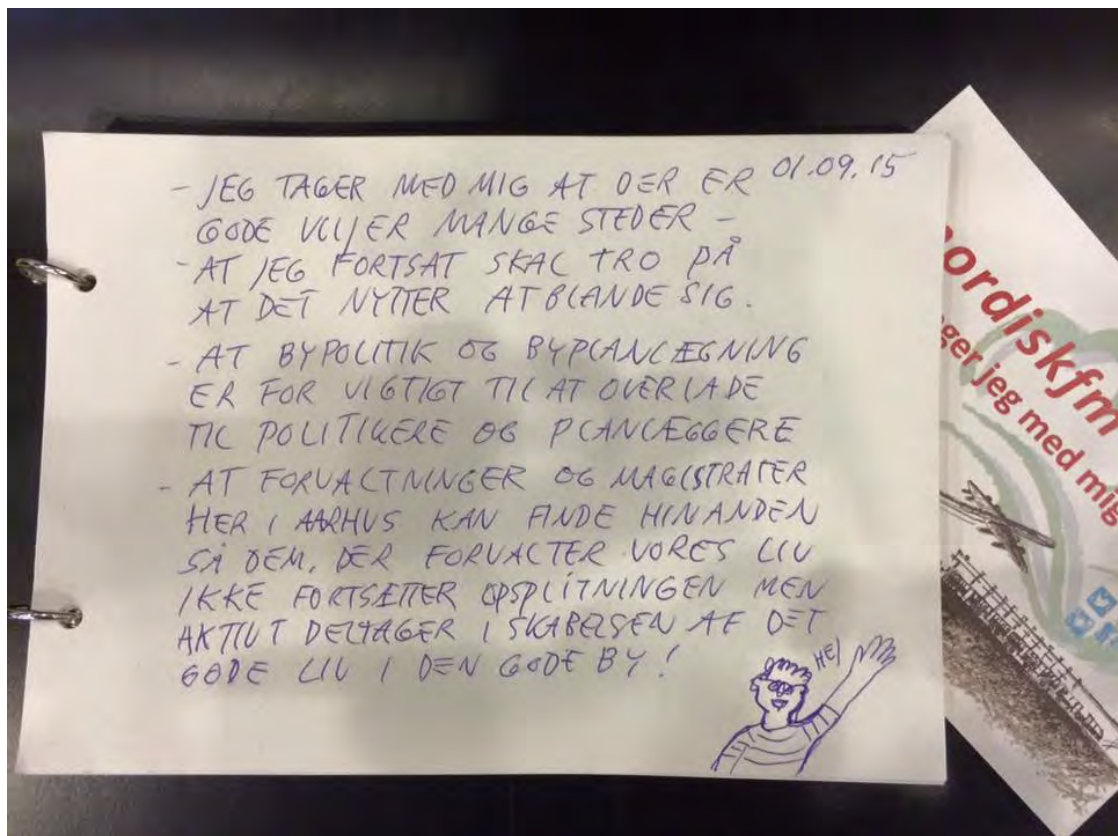 - JEG TAGER MED MIG AT DER ER 01.09.15
GODE VILJER MANGE STEDER -
- AT JEG FORTSAT SKAL TRO PÅ
AT DET NYTTER AT BLANDE SIG.
- AT BYPOLITIK OG BYPLANLÆGNING
ER FOR VIGTIGT TIL AT OVERLADE
TIL POLITIKERE OG PLANLÆGGERE
- AT FORVALTNINGER OG MAGISTRATER
HER I AARHUS KAN FINDE HINANDEN
SÅ DEM, DER FORVALTER VORES LIV
IKKE FORTSÆTTER OPSPLITNINGEN MEN
AKTIVT DELTAGER I SKABELSEN AF DET
GODE LIV I DEN GODE BY!
HEJ
nordiskfm
jeg med mig